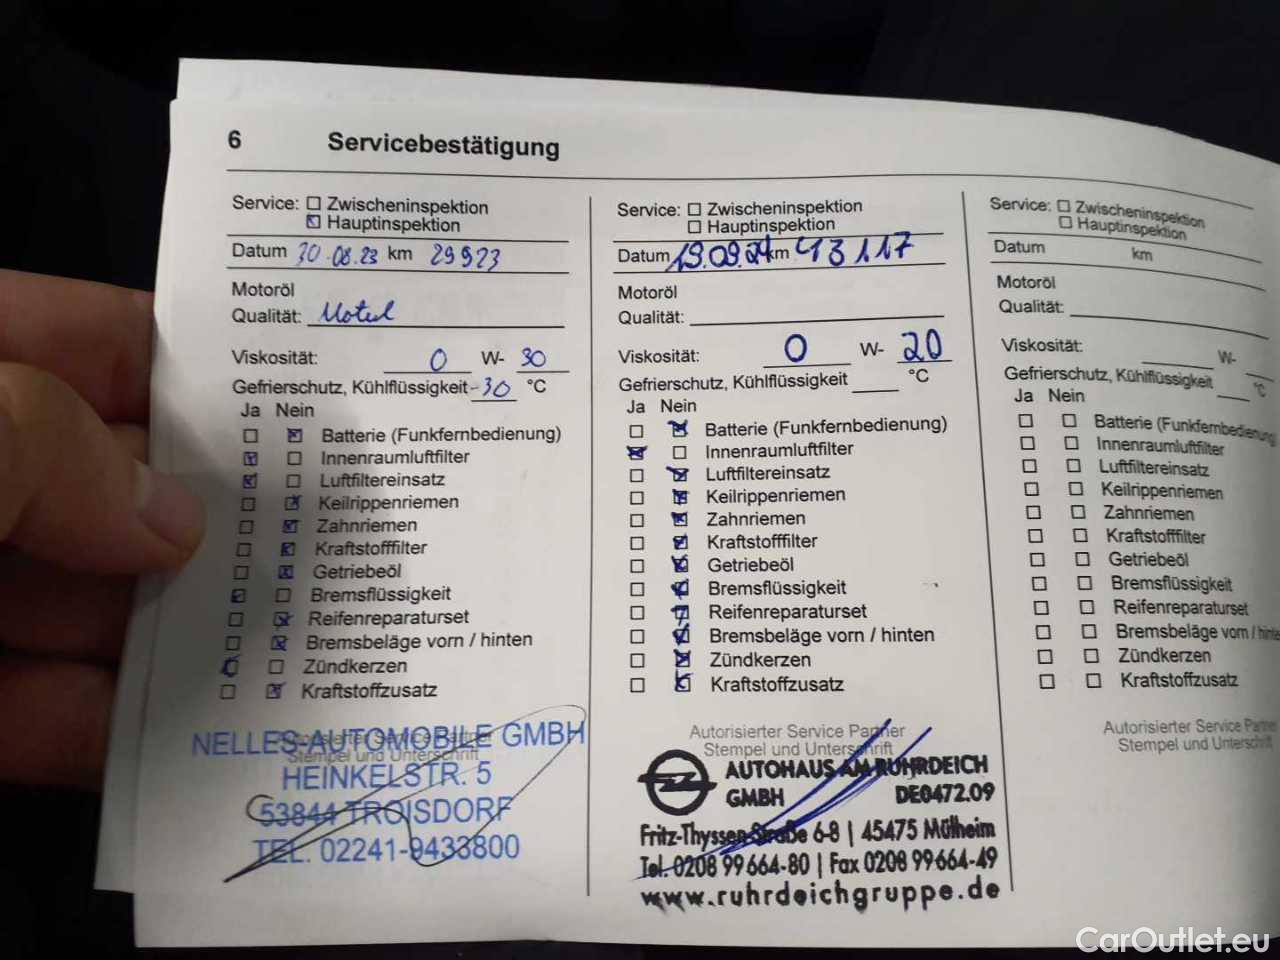 6 Servicebestätigung
Service: Zwischeninspektion
Hauptinspektion
Datum 30.08.23 km 29923
Motoröl
Qualität: Motul
Viskosität: 0 W- 30
Gefrierschutz, Kühlflüssigkeit -30 °C
Ja Nein
Batterie (Funkfernbedienung)
Innenraumluftfilter
Luftfiltereinsatz
Keilrippenriemen
Zahnriemen
Kraftstofffilter
Getriebeöl
Bremsflüssigkeit
Reifenreparaturset
Bremsbeläge vorn / hinten
Zündkerzen
Kraftstoffzusatz
Autorisierter Service Partner
Stempel und Unterschrift
NELLES-AUTOMOBILE GMBH
HEINKELSTR. 5
53844 TROISDORF
TEL. 02241-9433800
Service: Zwischeninspektion
Hauptinspektion
Datum 19.09.24 km 43117
Motoröl
Qualität:
Viskosität: 0 W- 20
Gefrierschutz, Kühlflüssigkeit °C
Ja Nein
Batterie (Funkfernbedienung)
Innenraumluftfilter
Luftfiltereinsatz
Keilrippenriemen
Zahnriemen
Kraftstofffilter
Getriebeöl
Bremsflüssigkeit
Reifenreparaturset
Bremsbeläge vorn / hinten
Zündkerzen
Kraftstoffzusatz
Autorisierter Service Partner
Stempel und Unterschrift
AUTOHAUS AM RUHRDEICH
GMBH DE0472.09
Fritz-Thyssen-Straße 6-8 | 45475 Mülheim
Tel. 0208 99 664-80 | Fax 0208 99 664-49
www.ruhrdeichgruppe.de
Service: Zwischeninspektion
Hauptinspektion
Datum km
Motoröl
Qualität:
Viskosität: W-
Gefrierschutz, Kühlflüssigkeit °C
Ja Nein
Batterie (Funkfernbedienung)
Innenraumluftfilter
Luftfiltereinsatz
Keilrippenriemen
Zahnriemen
Kraftstofffilter
Getriebeöl
Bremsflüssigkeit
Reifenreparaturset
Bremsbeläge vorn / hinte
Zündkerzen
Kraftstoffzusatz
Autorisierter Service Partner
Stempel und Unterschrift
CarOutlet.eu